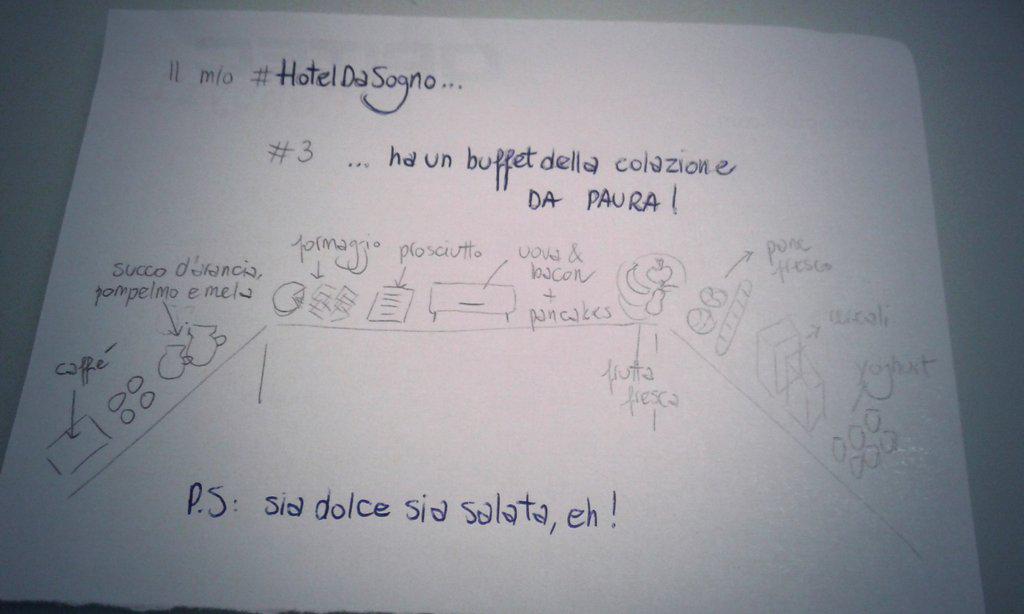 Il mio #HotelDaSogno...
#3 ... ha un buffet della colazione
DA PAURA!
formaggio
prosciutto
uova &
bacon
+
pancakes
pane
fresco
succo d'arancia,
pompelmo e mela
caffé
frutta
fresca
cereali
yoghurt
P.S: sia dolce sia salata, eh!